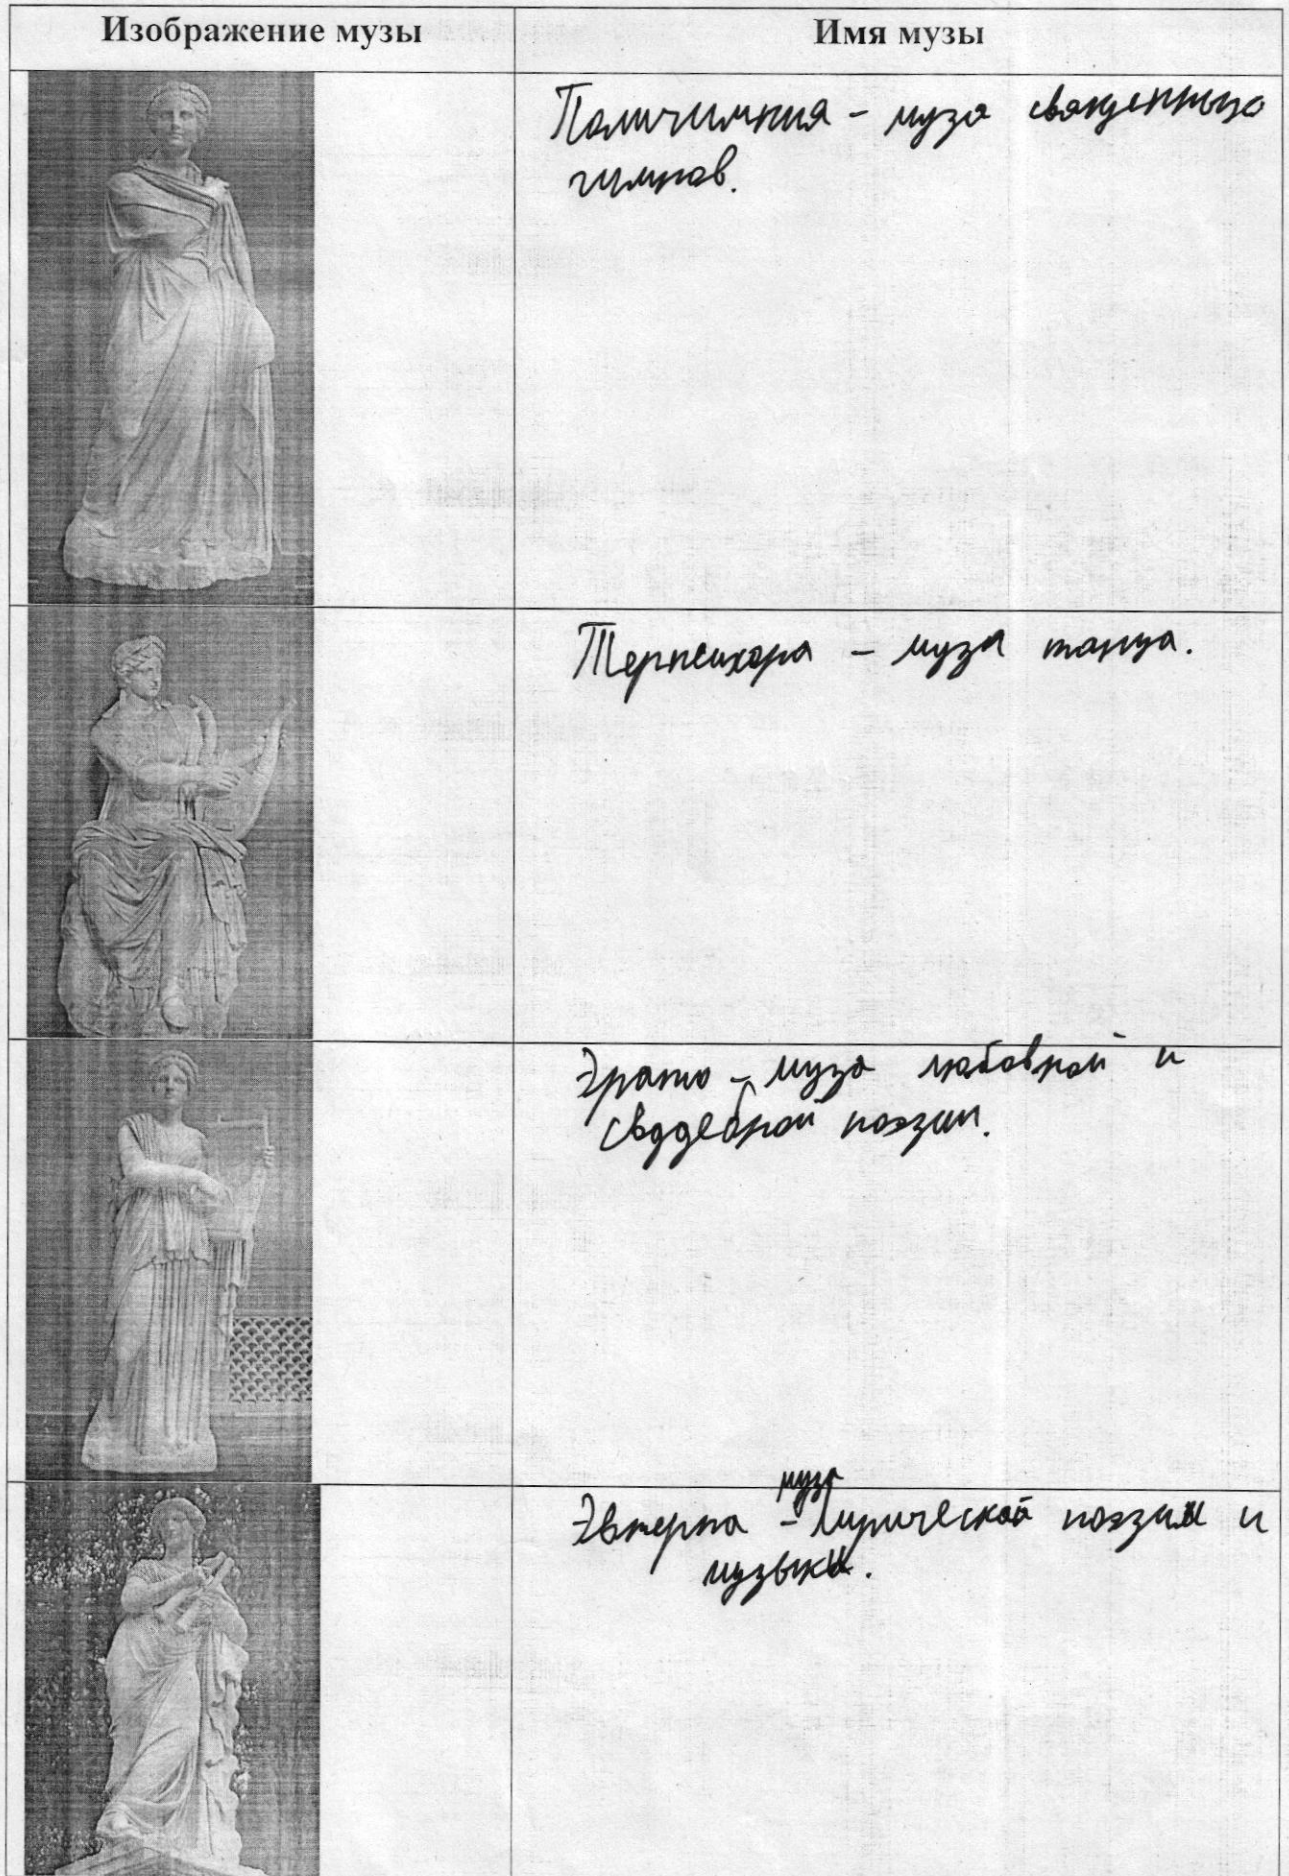 Изображение музы
Имя музы
Полигимния - муза священных
гимнов.
Терпсихора - муза танца.
Эрато - муза любовной и
свадебной поэзии.
муза
Эвтерпа - лирической поэзии и
музыки.